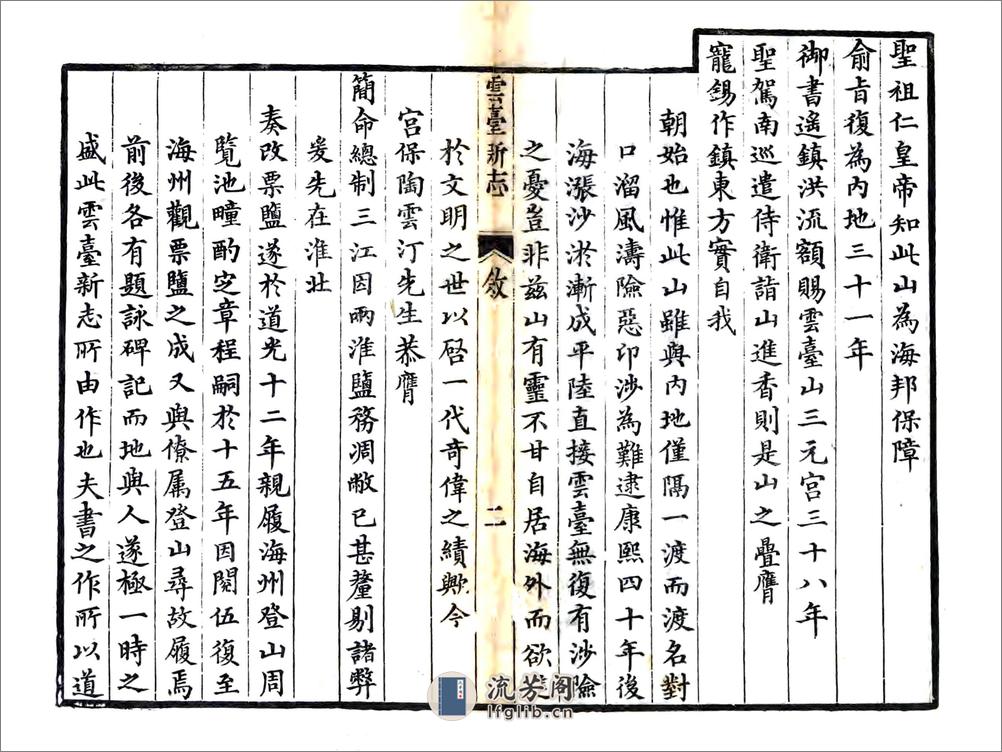 聖祖仁皇帝知此山為海邦保障
俞旨復為內地三十一年
御書遙鎮洪流額賜雲臺山三元宮三十八年
聖駕南巡遣侍衛詣山進香則是山之疊膺
寵錫作鎮東方實自我
朝始也惟此山雖與內地僅隔一渡而渡名對
口溜風濤險惡卬沙為難逮康熙四十年後
海漲沙淤漸成平陸直接雲臺無復有沙險
之憂豈非茲山有靈不甘自居海外而欲
雲臺新志
敘
二
於文明之世以啓一代奇偉之績歟今
宮保陶雲汀先生恭膺
簡命總制三江因兩淮鹽務凋敝已甚釐剔諸弊
爰先在淮北
奏改票鹽遂於道光十二年親履海州登山周
覽池疃酌定章程嗣於十五年因閱伍復至
海州觀票鹽之成又與僚属登山尋故履焉
前後各有題詠碑記而地與人遂極一時之
盛此雲臺新志所由作也夫書之作所以道
流芳阁
lfglib.cn